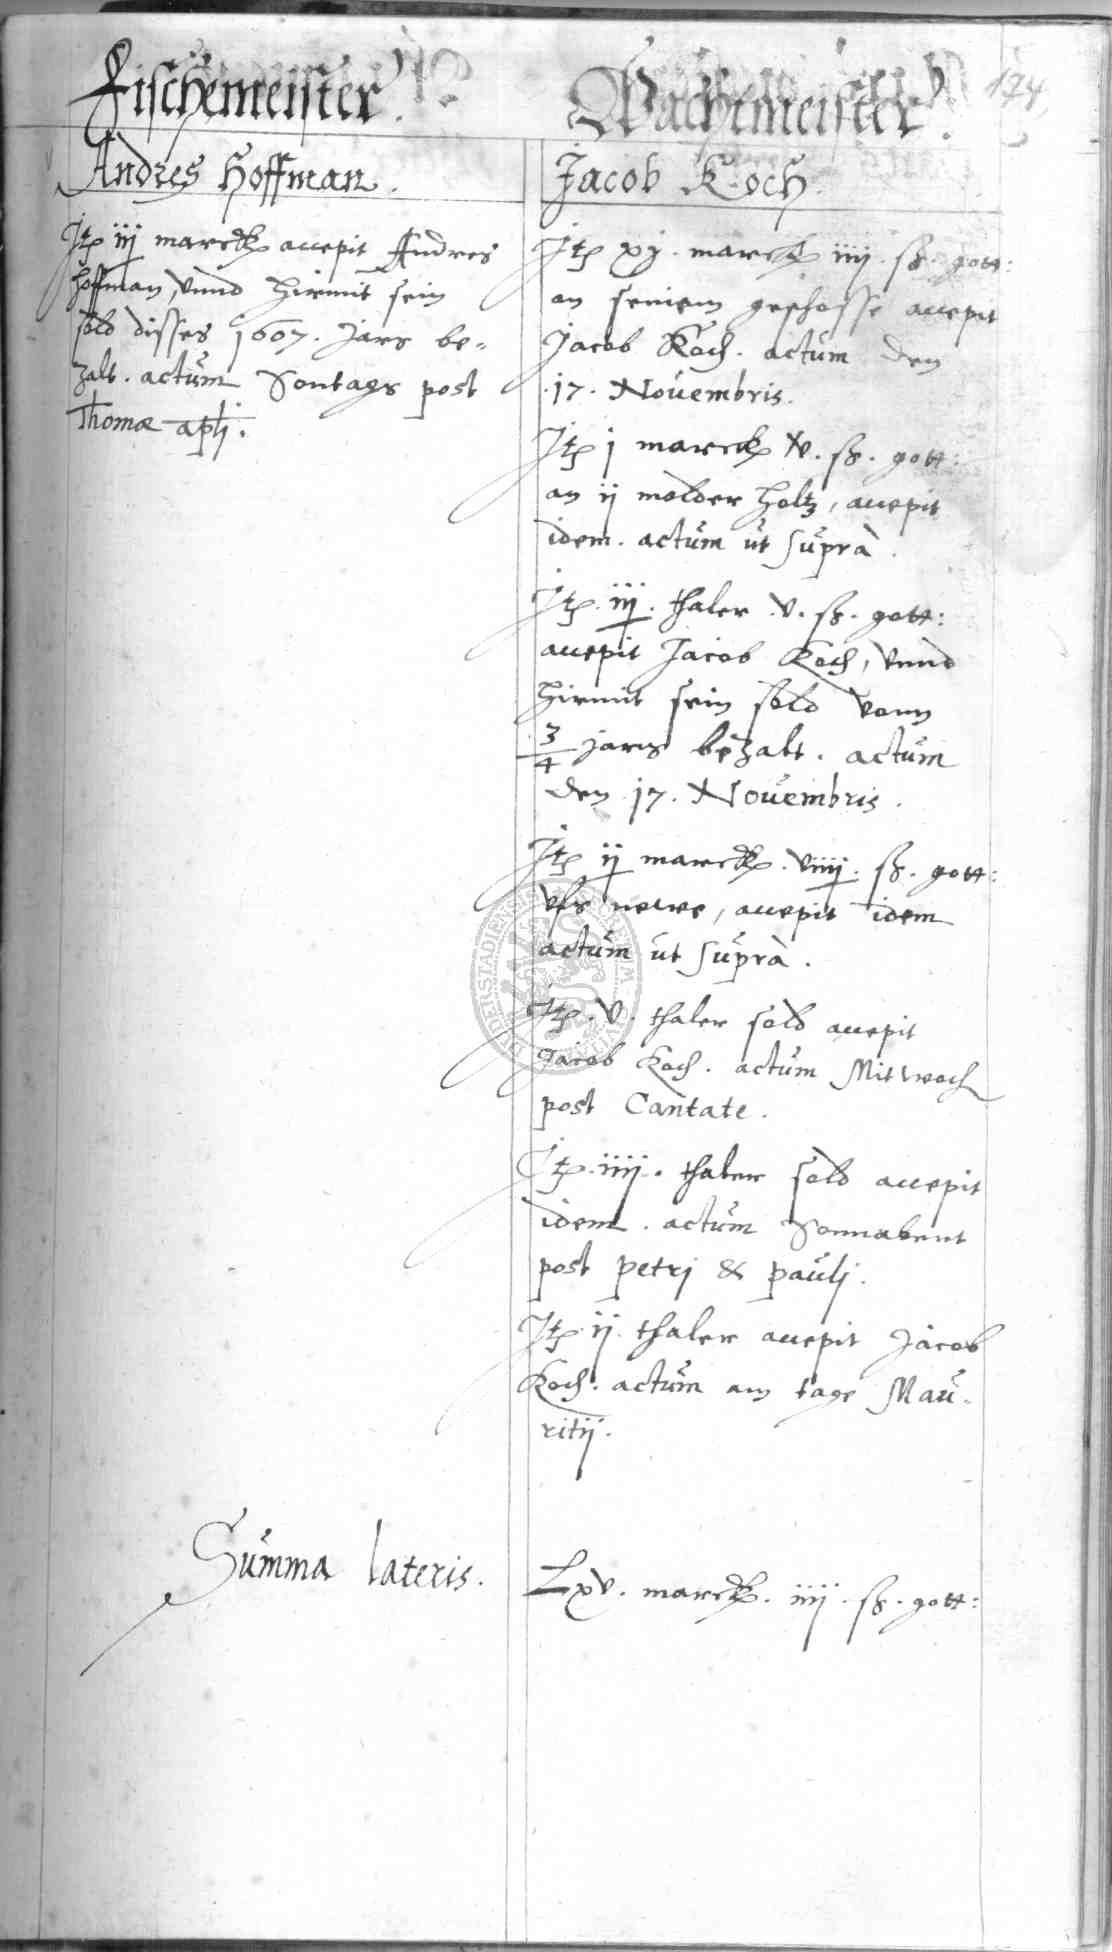 124.
Fischemeister.
Andres Hoffman.
Jtz iij marck accepit Andres
Hoffman, vnnd hirmit sein
sold disses 1607. Jars be-
zalt. actum Sontags post
Thomæ apli.
Wachtmeister.
Jacob Koch.
Jtz xj. marck iiij. sz. gott:
an seinem geschosse accepit
Jacob Koch. actum den
.17. Nouembris.
Jtz j marck v. sz. gott:
an ij molder holtz, accepit
idem. actum ut suprà.
Jtz. iij. thaler .v. sz. gott:
accepit Jacob Koch, vnnd
hirmit sein sold vonn
3/4 jars bezalt. actum
den .17. Nouembris.
Jtz ij marck. viiij. sz. gott:
vfs newe, accepit idem
actum ut suprà.
Jtz. v. thaler sold accepit
Jacob Koch. actum Mitwoch
post Cantate.
Jtz. iiij. thaler sold accepit
idem. actum Sonnabent
post petrj & paulj.
Jtz. ij thaler accepit Jacob
Koch. actum am tage Mau-
ritij.
Summa lateris.
Lxv. marck. iiij. sz. gott: